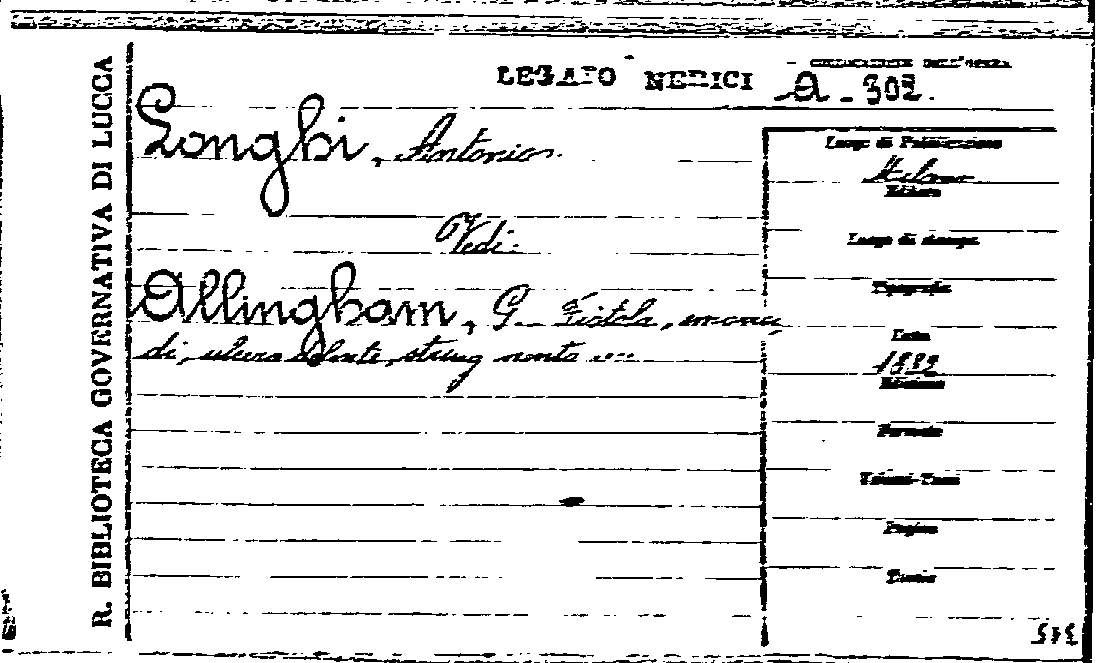 R. BIBLIOTECA GOVERNATIVA DI LUCCA
LEGATO NERICI
COLLOCAZIONE DELL'OPERA
A - 302.
Longhi, Antonio.
Vedi:
Allingham, G. Fistola, emorroi
di, ulcera dolente, string mento ....
Luogo di Pubblicazione
Milano
Editore
Luogo di stampa
Tipografia
Data
1882
Edizione
Formato
Volumi-Tomi
Pagine
Tavole